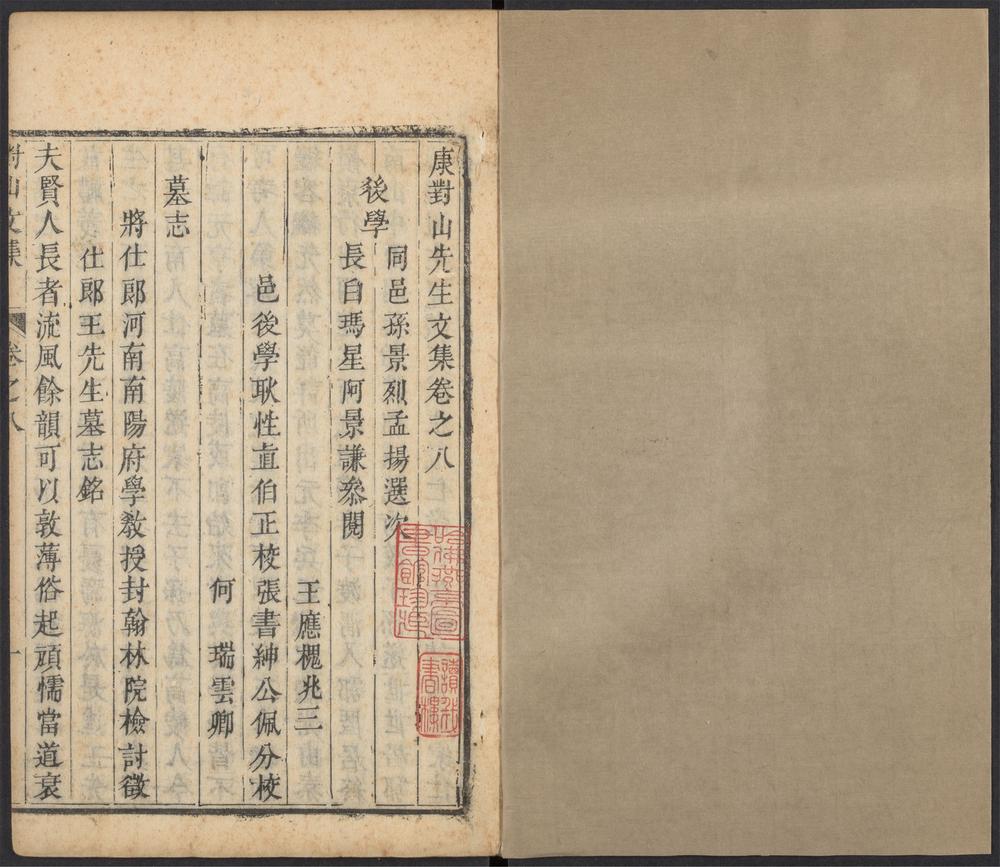 康對山先生文集卷之八
後學
同邑孫景烈孟揚選次
長白瑪星阿景謙叅閱
王應槐兆三
邑後學耿性直伯正校張書紳公佩分校
何瑞雲卿
墓志
將仕郎河南南陽府學教授封翰林院檢討徵
仕郎王先生墓志銘
夫賢人長者流風餘韻可以敦薄俗起頑懦當道衰
對山文集
卷之八
一
哈佛燕京圖書館珍藏